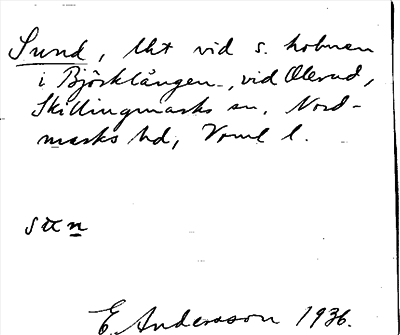 Sund, Uht vid s. holmen
i Björklången, vid Olerud,
Skillingmarks sn, Nord-
marks hd, Vrml l.
E. Andersson 1936.